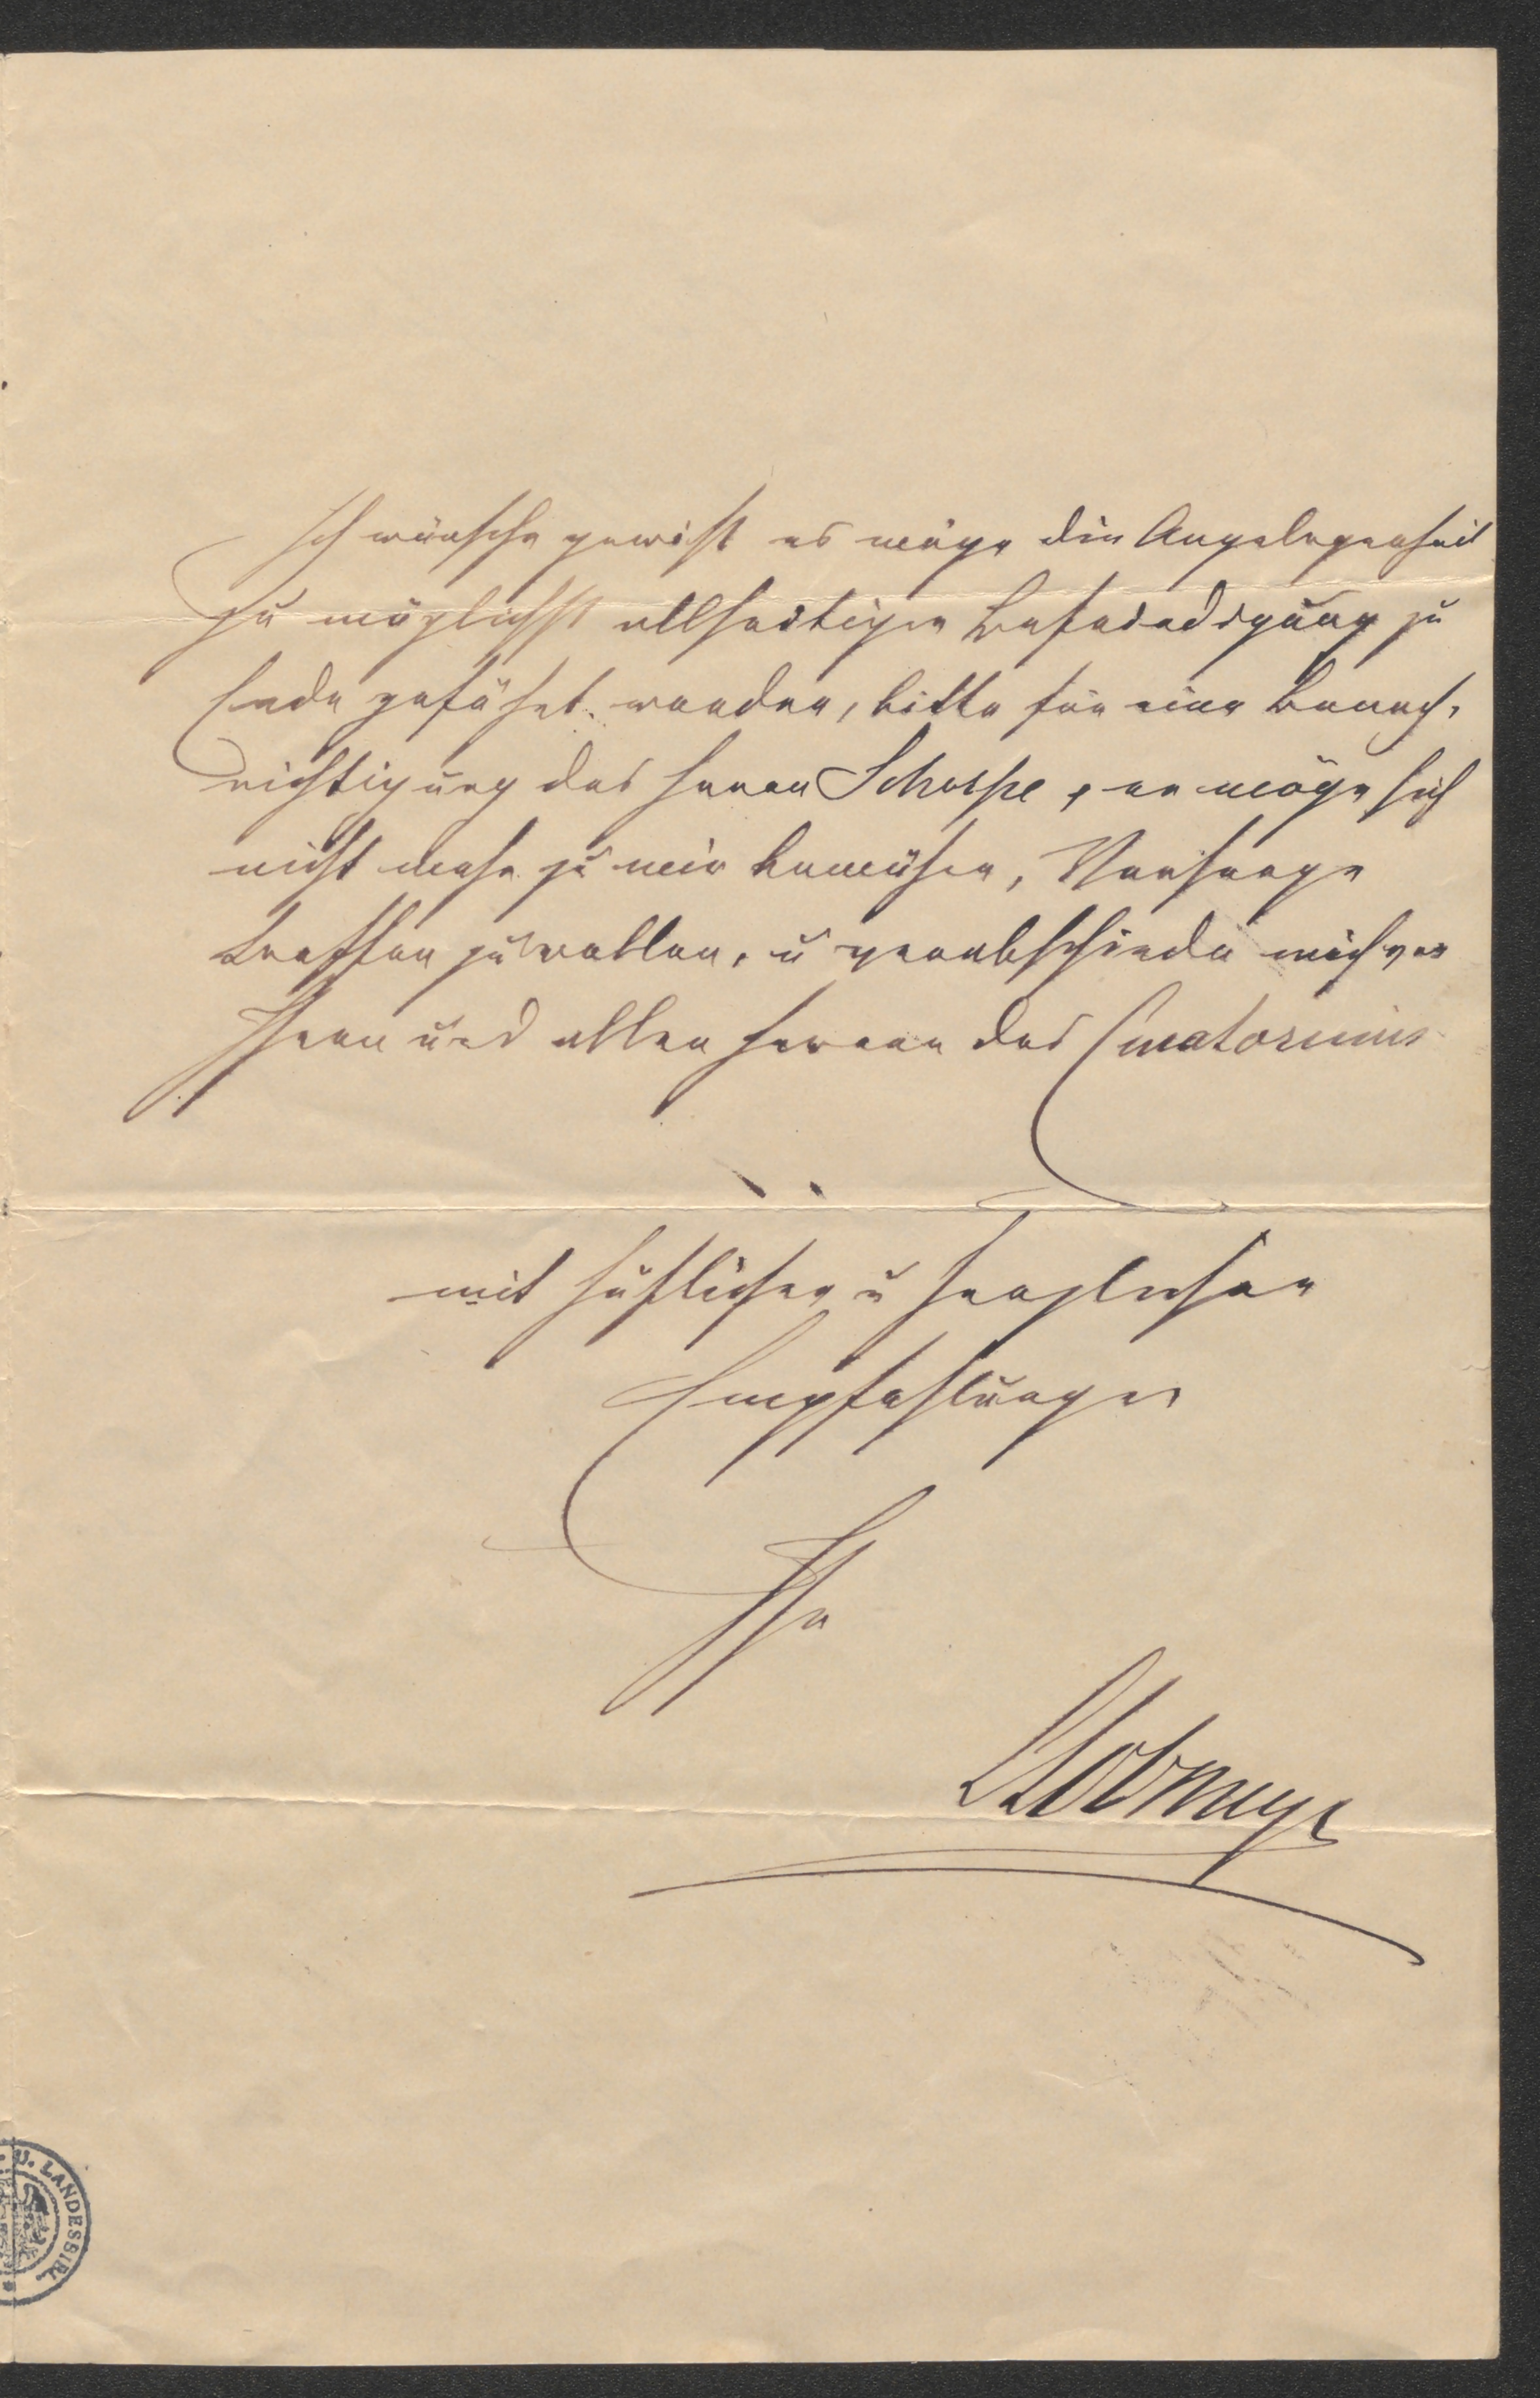 Ich wünsche gewiss es möge die Angelegenheit
zu möglichst allseitiger Befriedigung zu
Ende geführt werden, bitte für eine Benach-
richtigung des Herrn , er möge sich
nicht mehr zu mir bemühen, Vorsorge
treffen zu wollen, u verabschiede mich von
Ihnen und allen Herren des Curatoriums
mit höflichen u herzlichen
Empfehlungen
Ihr
LLobmeyr
U. LANDESBIBL.